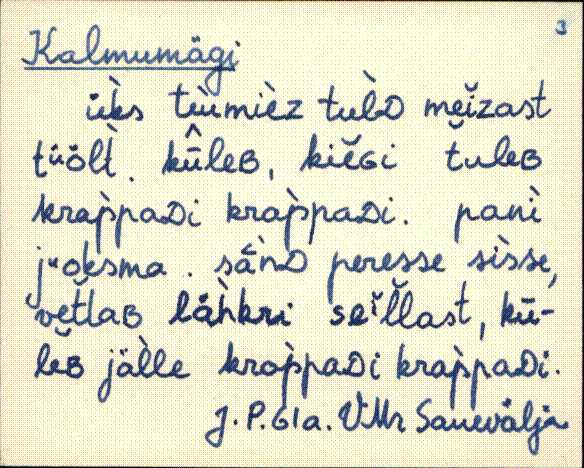 3
Kalmumägi
ük̀s tüùmièz tuĺ̀ᴅ meĭzast
tüöl̀t. kû̬leʙ, kiĕɢi t̆uleʙ
krap̀paᴅi krap̀paᴅi. panì
juoksma. sǟ̀nᴅ peresse sìsse,
vet̆laʙ låh̀kri seĭl̆last, kū-
lĕʙ jäl̀le krap̀paᴅi krap̀paᴅi.
J. P. 61a. VMr Sauevälja